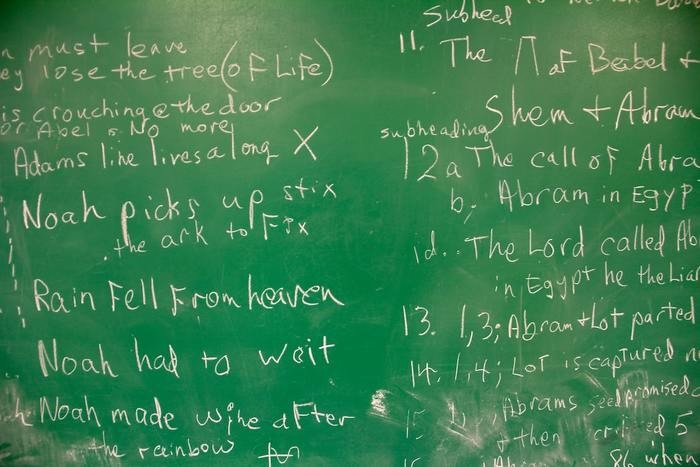 must leave
lose the tree (of Life)
is crouching @ the door
or Abel is No more
Adams line lives along X
Noah picks up stix
the ark to Fix
Rain Fell From heaven
Noah had to wait
Noah made wine aFter
the rainbow
Subhead
11. The Π aF Babel +
Shem + Abram
subheading
12a The call oF Abra
b. Abram in Egyp
id.. The Lord called Ab
in Egypt he the Liar
13. 1,3; Abram + Lot parted
14. 1,4; Lot is captured
15 Abrams seed promised
+ then 5
86 when